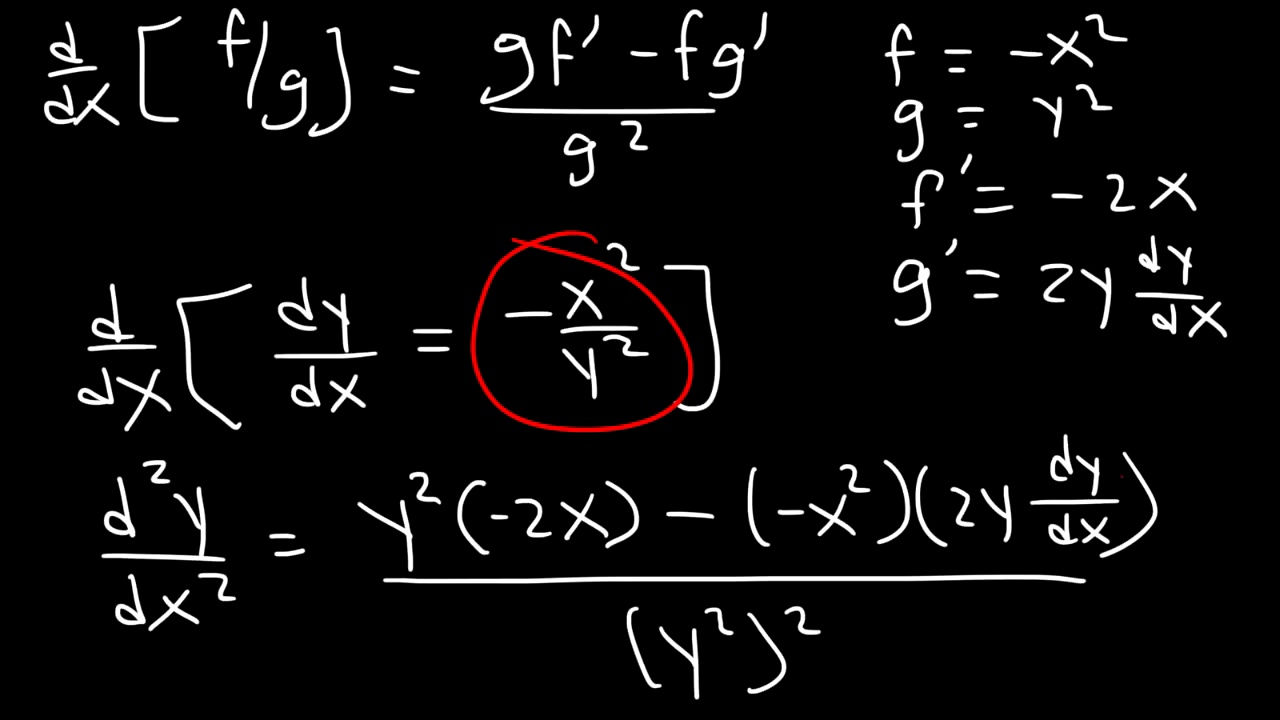 d/dx [ f/g ] = (gf' - fg')/g²
f = -x²
g = y²
f' = -2x
g' = 2y dy/dx
d/dx [ dy/dx = -x²/y² ]
d²y/dx² = (y²(-2x) - (-x²)(2y dy/dx))/(y²)²